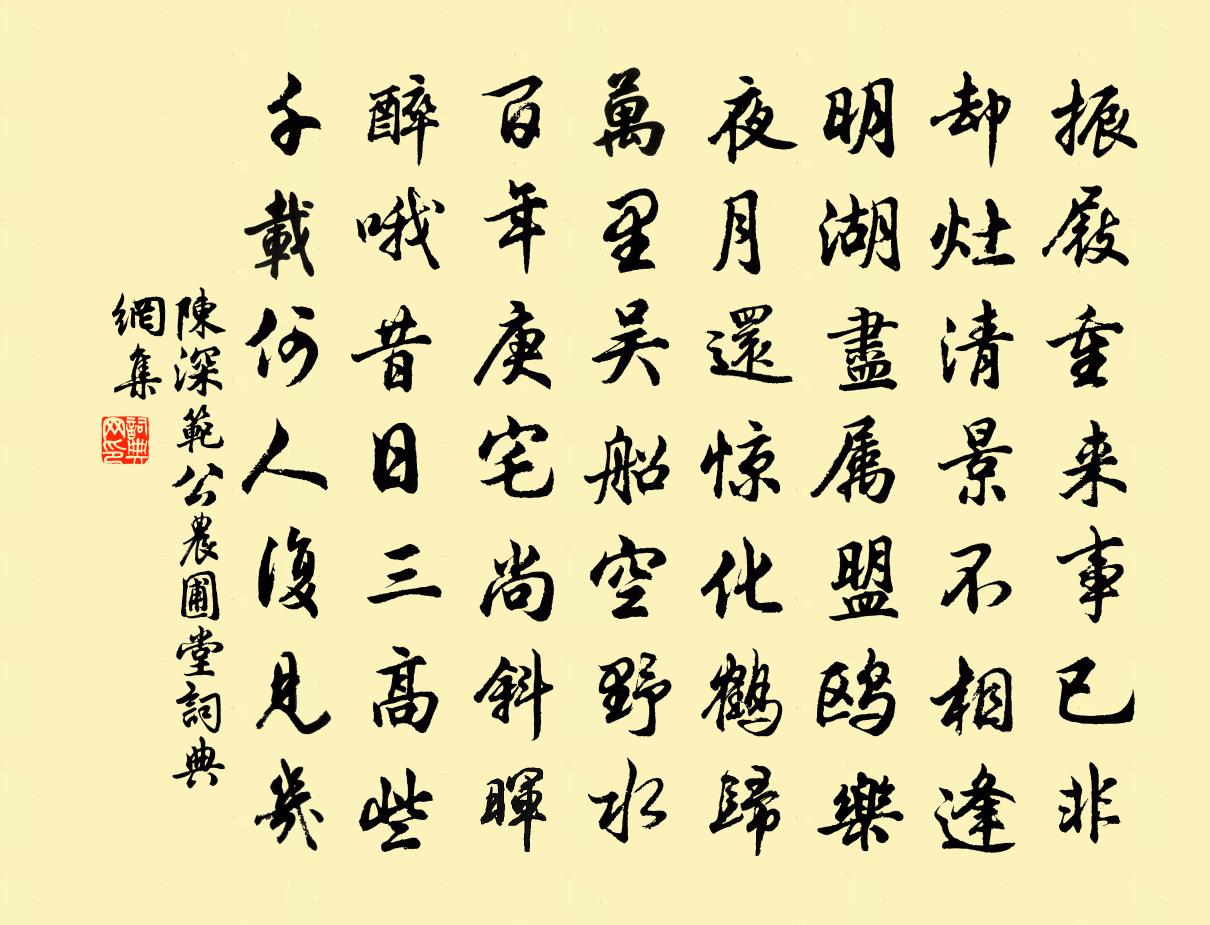 振屐重来事已非
却灶清景不相逢
明湖盡属盟鸥樂
夜月還惊化鹤歸
萬里吴船空野水
百年庚宅尚斜暉
醉哦昔日三高些
千載何人復見幾
陳深範公農圃堂詞典
網集
詞典
网印